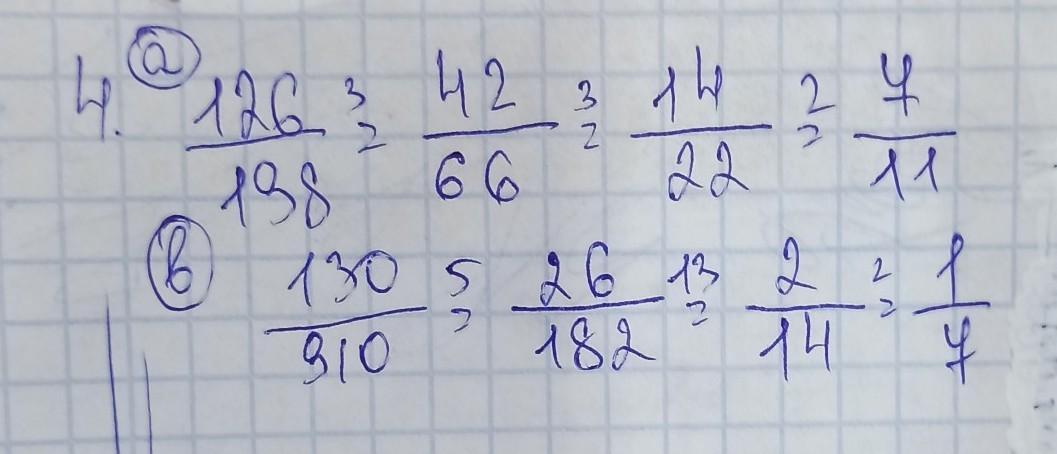 4. a) 126/198 =³ 42/66 =³ 14/22 =² 7/11
b) 130/910 =⁵ 26/182 =¹³ 2/14 =² 1/7